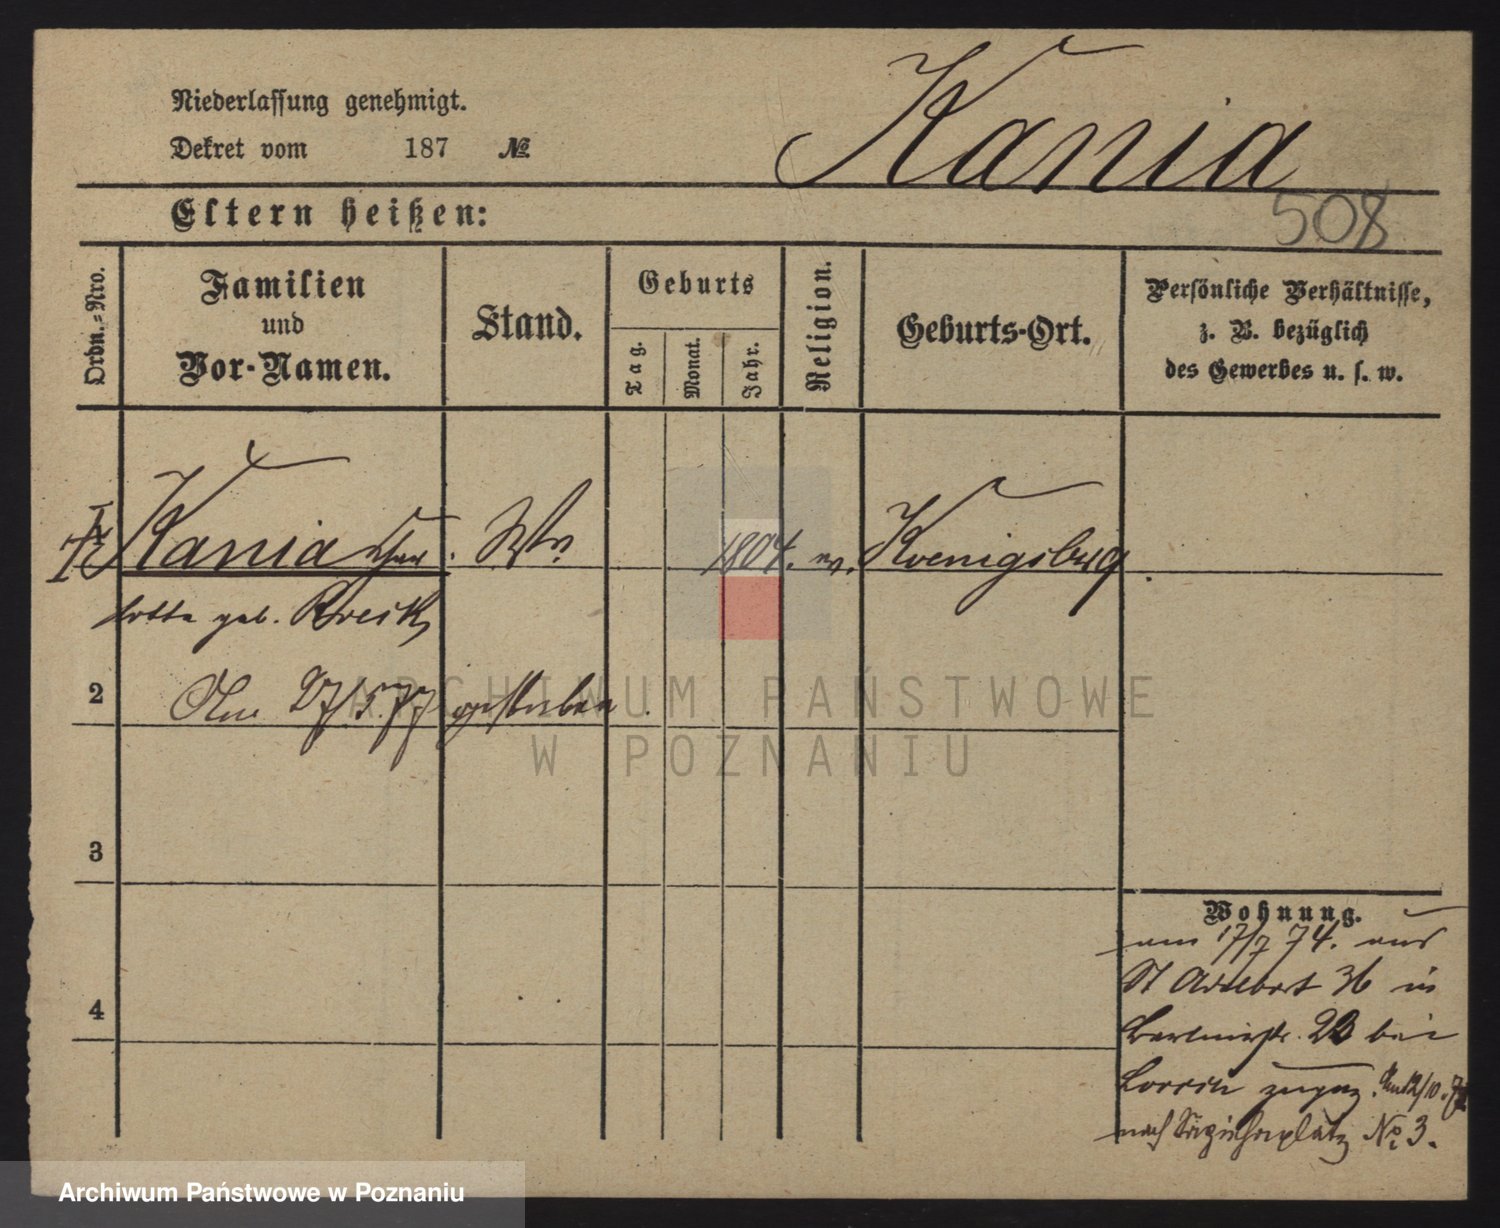 Kania
Niederlassung genehmigt.
Dekret vom 187 №
508
Eltern heißen:
Ordn.-Nro.
Familien
und
Vor-Namen.
Stand.
Geburts
Tag.
Monat.
Jahr.
Religion.
Geburts-Ort.
Persönliche Verhältnisse,
z. B. bezüglich
des Gewerbes u. s. w.
Kania Char Ww. 1804. ev. Koenigsberg.
lotte geb.
2 Am 27/5.77 gestorben.
3
4
Wohnung.
am 17/7 74. aus
St Adalbert 36 in
bei
zugez. Am 12/10.
nach No 3.
ARCHIWUM PAŃSTWOWE
W POZNANIU
Archiwum Państwowe w Poznaniu